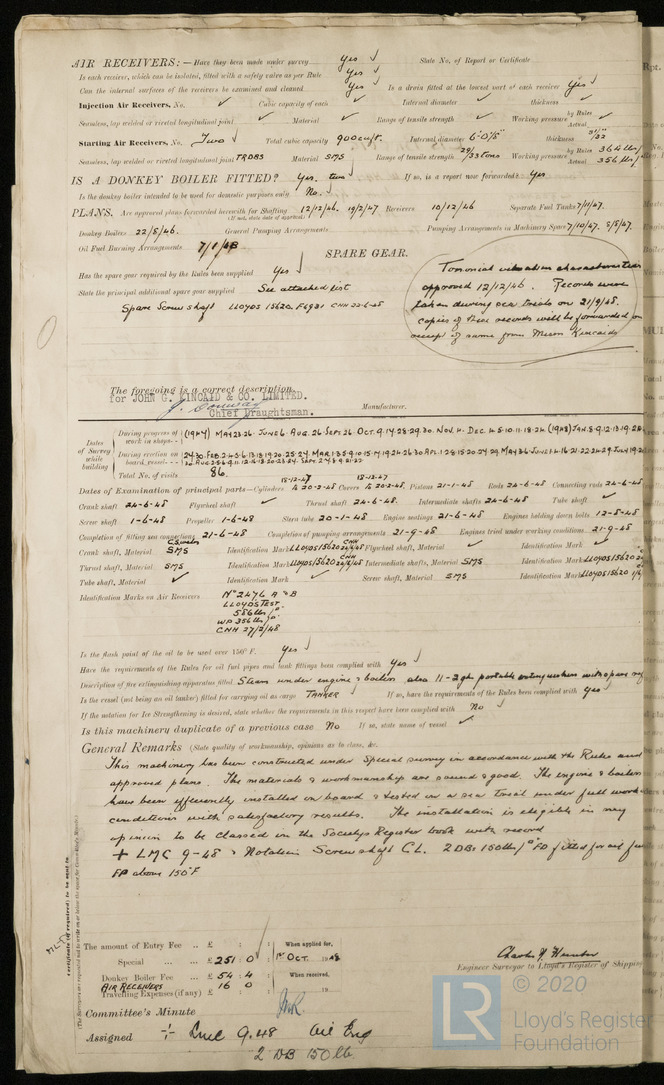 AIR RECEIVERS:— Have they been made under survey Yes ✓ State No. of Report or Certificate
Is each receiver, which can be isolated, fitted with a safety valve as per Rule Yes ✓
Can the internal surfaces of the receivers be examined and cleaned Yes ✓ Is a drain fitted at the lowest part of each receiver Yes ✓
Injection Air Receivers, No. ✓ Cubic capacity of each ✓ Internal diameter ✓ thickness ✓
Seamless, lap welded or riveted longitudinal joint ✓ Material ✓ Range of tensile strength ✓ Working pressure by Rules Actual ✓
Starting Air Receivers, No. Two ✓ Total cubic capacity 900 cu/ft. Internal diameter 6'0 5/8" thickness 31/32"
Seamless, lap welded or riveted longitudinal joint TRDBS Material SMS Range of tensile strength 29/33 tons Working pressure by Rules 364 lbs/ Actual 356 lbs/
IS A DONKEY BOILER FITTED? Yes. two ✓ If so, is a report now forwarded? Yes
Is the donkey boiler intended to be used for domestic purposes only No. ✓
PLANS. Are approved plans forwarded herewith for Shafting 12/12/46. 19/2/47 Receivers 10/12/46 Separate Fuel Tanks 7/11/47.
(If not, state date of approval)
Donkey Boilers 22/8/46. General Pumping Arrangements Pumping Arrangements in Machinery Space 7/10/47. 8/5/47.
Oil Fuel Burning Arrangements 7/1/48
SPARE GEAR.
Has the spare gear required by the Rules been supplied Yes ✓
State the principal additional spare gear supplied See attached list
Spare Screw shaft LLOYDS 15620. F6931 CNH 22-6-48
Torsional vibration characteristics
approved 12/12/46. Records were
taken during sea trials on 21/9/48.
copies of these records will be forwarded on
receipt of same from Messrs Kincaids
The foregoing is a correct description,
for JOHN G. KINCAID & CO. LIMITED.
Chief Draughtsman. Manufacturer.
Dates of Survey while building
During progress of work in shops - - (1947) MAY 23.26. JUNE 6. AUG. 26 SEPT. 26 OCT. 9.14.28.29.30. NOV. 4. DEC. 4.5.10.11.18.24. (1948) JAN. 8.9.12.13.19.28.
During erection on board vessel - -
Total No. of visits 86.
Dates of Examination of principal parts—Cylinders 18-12-47 to 20-2-48 Covers 18-12-47 to 20-2-48. Pistons 21-1-48 Rods 24-6-48 Connecting rods 24-6-48
Crank shaft 24-6-48 Flywheel shaft ✓ Thrust shaft 24-6-48. Intermediate shafts 24-6-48 Tube shaft ✓
Screw shaft 1-6-48 Propeller 1-6-48 Stern tube 20-1-48 Engine seatings 21-6-48 Engines holding down bolts 12-8-48
Completion of fitting sea connections 21-6-48 Completion of pumping arrangements 21-9-48 Engines tried under working conditions 21-9-48
Crank shaft, Material SMS Identification Mark LLOYDS 15620 CNH 24/6/48 Flywheel shaft, Material ✓ Identification Mark ✓
Thrust shaft, Material SMS Identification Mark LLOYDS 15620 CNH 24/6/48 Intermediate shafts, Material SMS Identification Mark LLOYDS 15620
Tube shaft, Material ✓ Identification Mark ✓ Screw shaft, Material SMS Identification Mark LLOYDS 15620 1/6
Identification Marks on Air Receivers Nº 2476 A & B
LLOYDS TEST
586 lbs/□"
WP 356 lbs/□"
CNH 27/2/48
Is the flash point of the oil to be used over 150° F. Yes ✓
Have the requirements of the Rules for oil fuel pipes and tank fittings been complied with Yes ✓
Description of fire extinguishing apparatus fitted Steam under engine & boilers also 11-2gln portable extinguishers with spare
Is the vessel (not being an oil tanker) fitted for carrying oil as cargo TANKER ✓ If so, have the requirements of the Rules been complied with Yes ✓
If the notation for Ice Strengthening is desired, state whether the requirements in this respect have been complied with No ✓
Is this machinery duplicate of a previous case No If so, state name of vessel ✓
General Remarks (State quality of workmanship, opinions as to class, &c.
This machinery has been constructed under Special survey in accordance with the Rules and
approved plans. The materials & workmanship are sound & good. The engine & boilers
have been efficiently installed on board & tested on a sea trial under full work
conditions with satisfactory results. The installation is eligible in my
opinion to be classed in the Societys Register book with record
+ LMC 9-48 & Notation Screw shaft C.L. 2 DBs 150 lbs/□" FD fitted for oil fuel
FP above 150°F
Certificate (if required) to be sent to
(The Surveyors are requested not to write on or below the space for Committee's Minute.)
The amount of Entry Fee .. £ : :
Special ... £ 251 : 0 : When applied for, 1st OCT. 1948
Donkey Boiler Fee ... £ 54 : 4 : When received,
AIR RECEIVERS 16 0
Travelling Expenses (if any) £ : : 19
Charles N Hunter
Engineer Surveyor to Lloyd's Register of Shipping
Committee's Minute
Assigned + Lmc 9.48 Oil Eng
2 DB 150 lb
© 2020
LR Lloyd's Register
Foundation